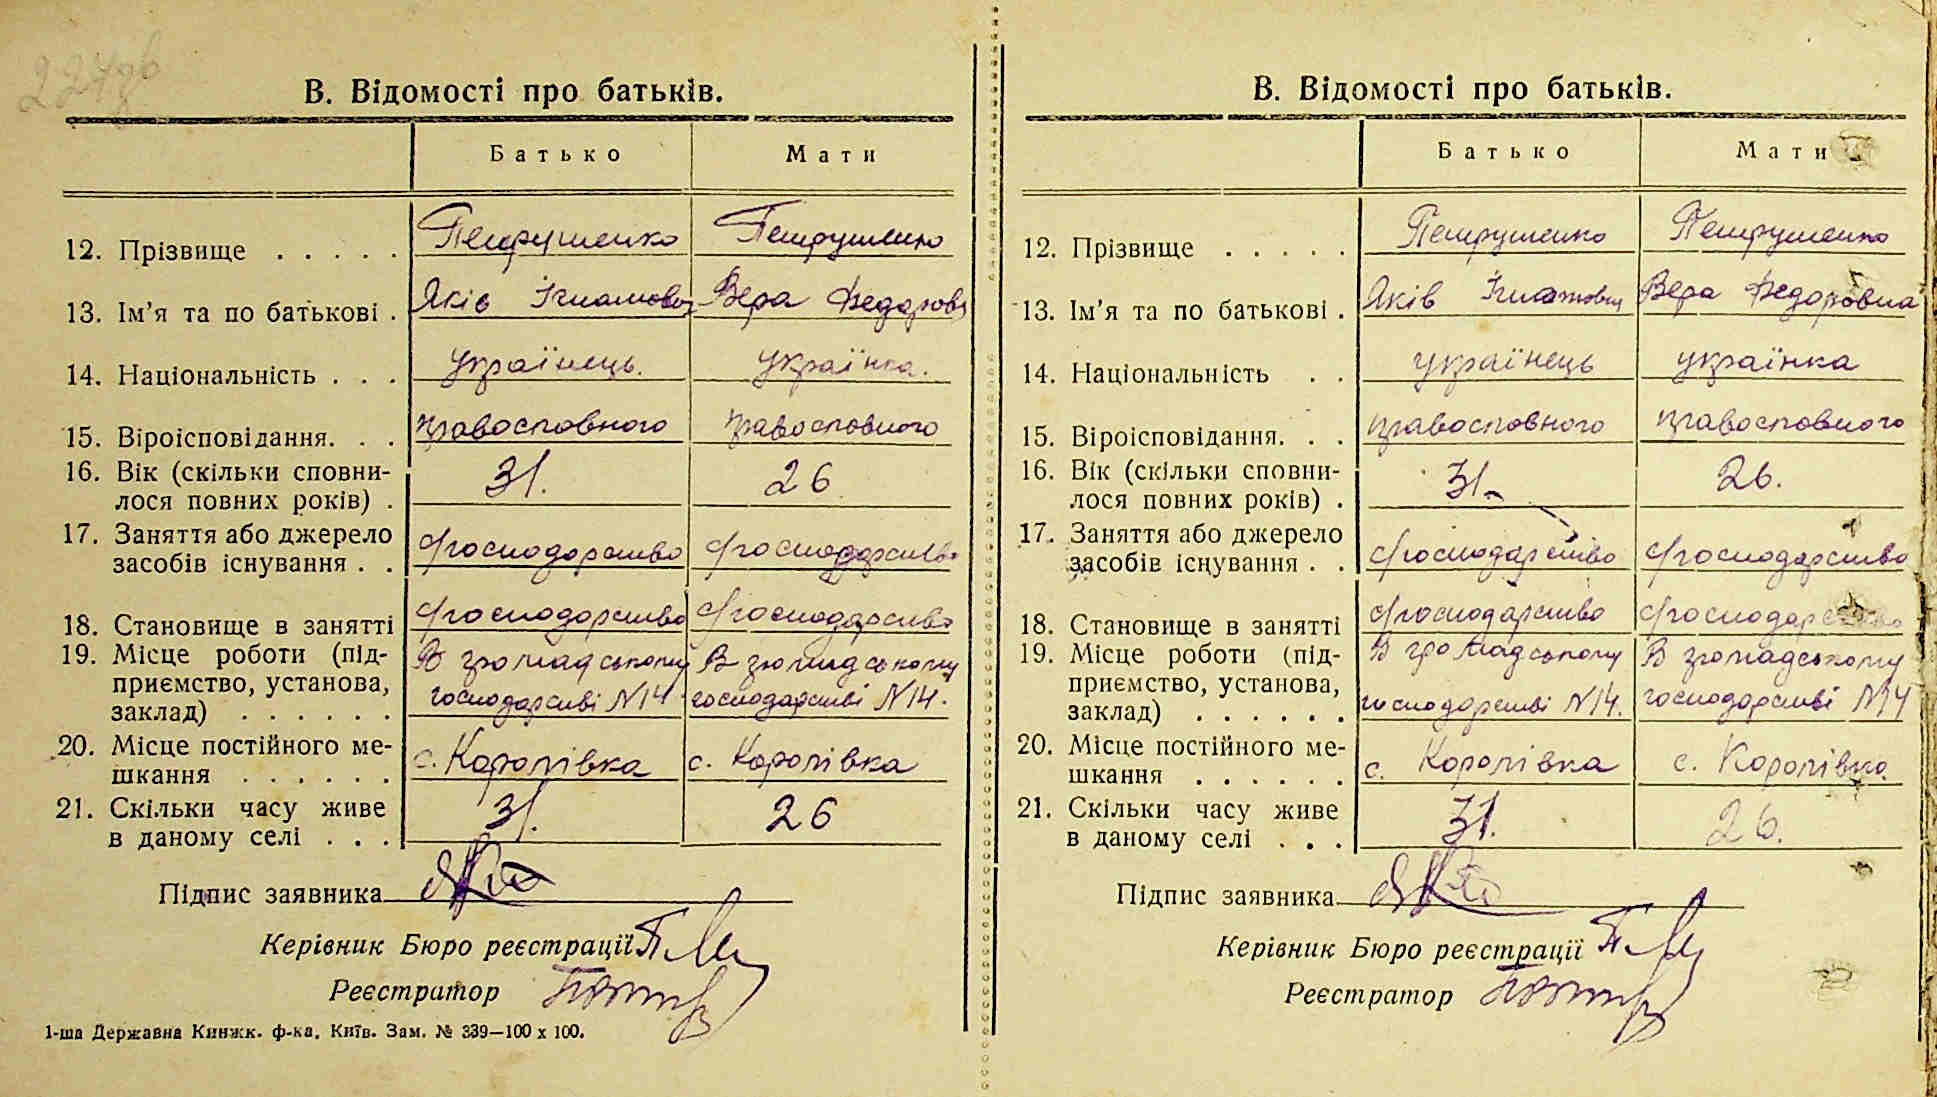 224зв
В. Відомості про батьків.
Батько Мати
12. Прізвище . . . . . Петрушенко Петрушенко
13. Ім'я та по батькові . Яків Ігнатович Вера Федоровн
14. Національність . . . українець. українка.
15. Віроісповідання. . . православного православного
16. Вік (скільки сповни-
лося повних років) . 31. 26
17. Заняття або джерело
засобів існування . . с/господарство с/господарство
18. Становище в занятті с/господарство с/господарство
19. Місце роботи (під- В громадському В громадському
приємство, установа, господарстві №14. господарстві №14.
заклад) . . . . . .
20. Місце постійного ме-
шкання . . . . . . с. Королівка с. Королівка
21. Скільки часу живе
в даному селі . . . 31. 26
Підпис заявника
Керівник Бюро реєстрації
Реєстратор
1-ша Державна Книжк. ф-ка, Київ. Зам. № 339—100 х 100.
В. Відомості про батьків.
Батько Мати
12. Прізвище . . . . . Петрушенко Петрушенко
13. Ім'я та по батькові . Яків Ігнатович Вера Федоровна
14. Національність . . українець українка
15. Віроісповідання. . . православного православного
16. Вік (скільки сповни-
лося повних років) . 31. 26.
17. Заняття або джерело
засобів існування . . с/господарство с/господарство
18. Становище в занятті с/господарство с/господарство
19. Місце роботи (під- В громадському В громадському
приємство, установа, господарстві №14. господарстві №14
заклад) . . . . . .
20. Місце постійного ме-
шкання . . . . . . с. Королівка с. Королівка
21. Скільки часу живе
в даному селі . . . 31. 26.
Підпис заявника
Керівник Бюро реєстрації
Реєстратор